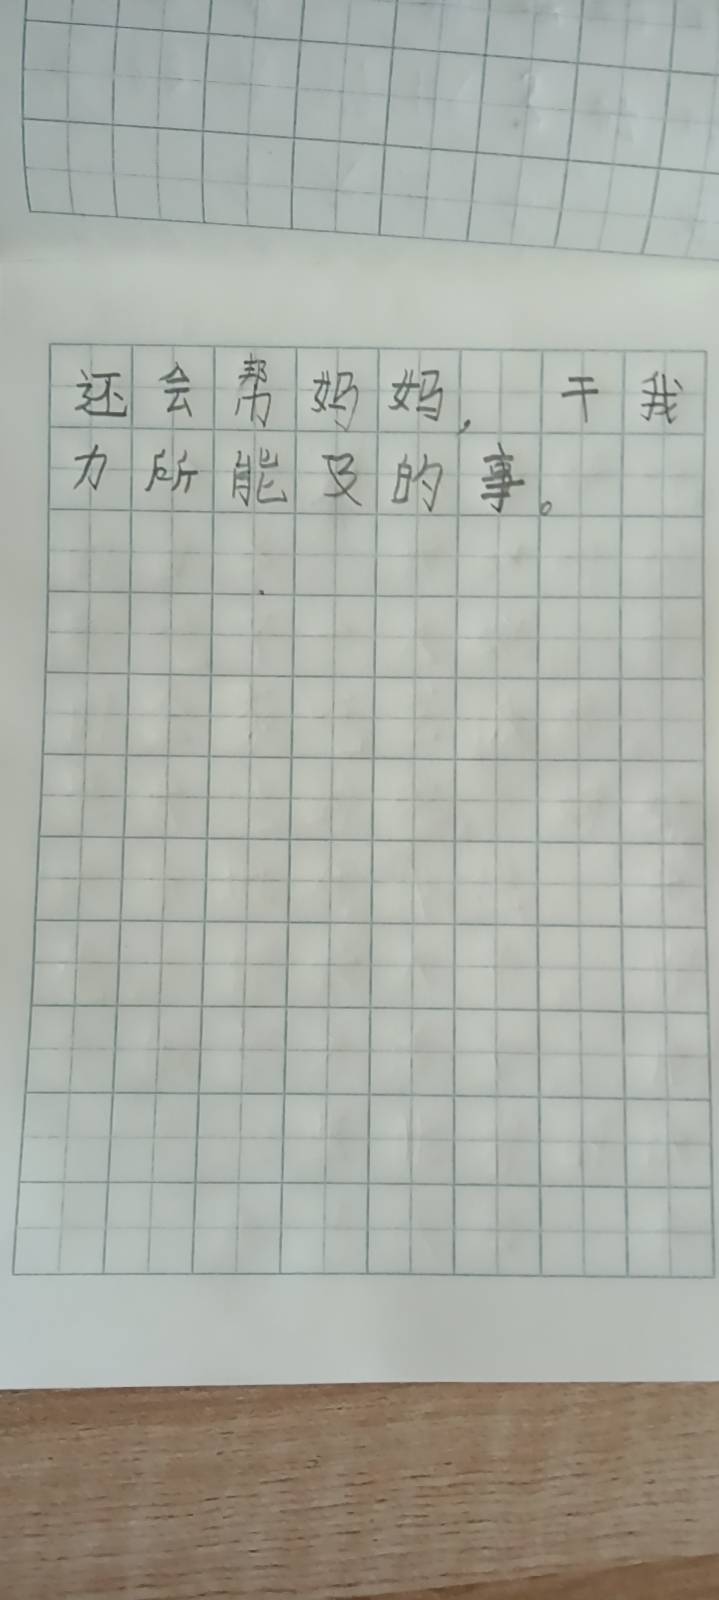 还会帮妈妈，干我
力所能及的事。